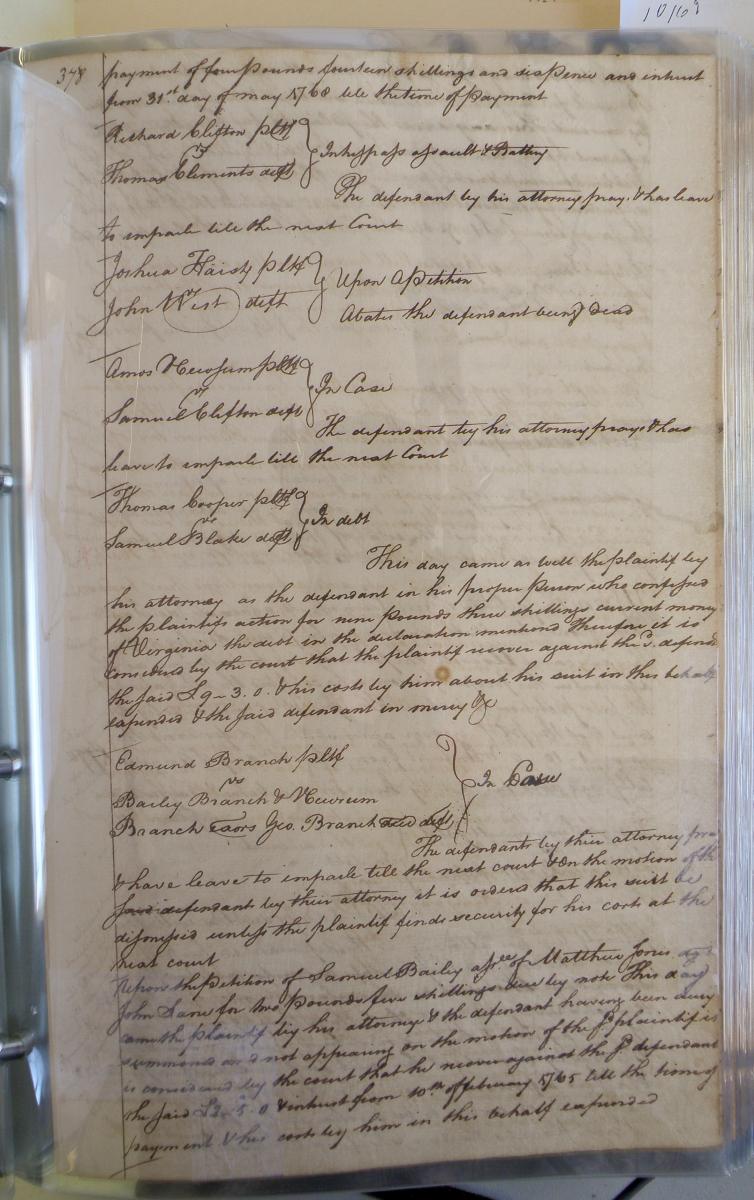 378
payment of four pounds fourteen shillings and sixpence and intrust
from 31st day of may 1768 till the time of payment
Richard Clifton pltf
vs
Thomas Clements deft
In trespass assault & Battery
The defendant by his attorney pray. & has leave
to imparle till the next Court
Joshua pltf
vs
John West deft
Upon a Petition
Abates the defendant being dead
Amos Newsum pltf
vs
Samuel Clifton deft
In Case
The defendant by his attorney prays & has
leave to imparle till the next Court
Thomas Cooper pltf
vs
Samuel Blake deft
In debt
This day came as well the plaintif by
his attorney as the defendant in his proper person who confessed
the plaintifs action for nine pounds three shillings current money
of Virginia the debt in the declaration mentiond Therefore it is
considered by the court that the plaintif recover against the sd. defend
the said £9-3.0. & his costs by him about his suit in this behalf
expended & the said defendant in mercy &c
Edmund Branch pltf
vs
Bailey Branch & Newsum
Branch exors Geo. Branch decd deft
In Case
The defendants by their attorney pray
& have leave to imparle till the next court & On the motion of the
said defendants by their attorney it is orderd that this suit be
dismissed unless the plaintif finds security for his costs at the
next court
Upon the petition of Samuel Bailey assee of Matthew Jones agt
John Lane for two pounds five shillings due by note This day
came the plaintif by his attorney & the defendant having been duly
summond and not appearing on the motion of the sd plaintif is
is considered by the court that he recover against the sd defendant
the said £2.5.0 & intrust from 10th of february 1765 till the time of
payment & his costs by him in this behalf expended